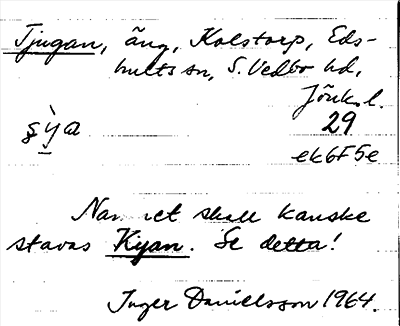 Tjugan, äng, Kolstorp, Eds-
hults sn, S. Vedbo hd,
Jönk. l.
29
ek6F5e
Namnet skall kanske
stavas Kijan. Se detta!
Inger Danielsson 1964.